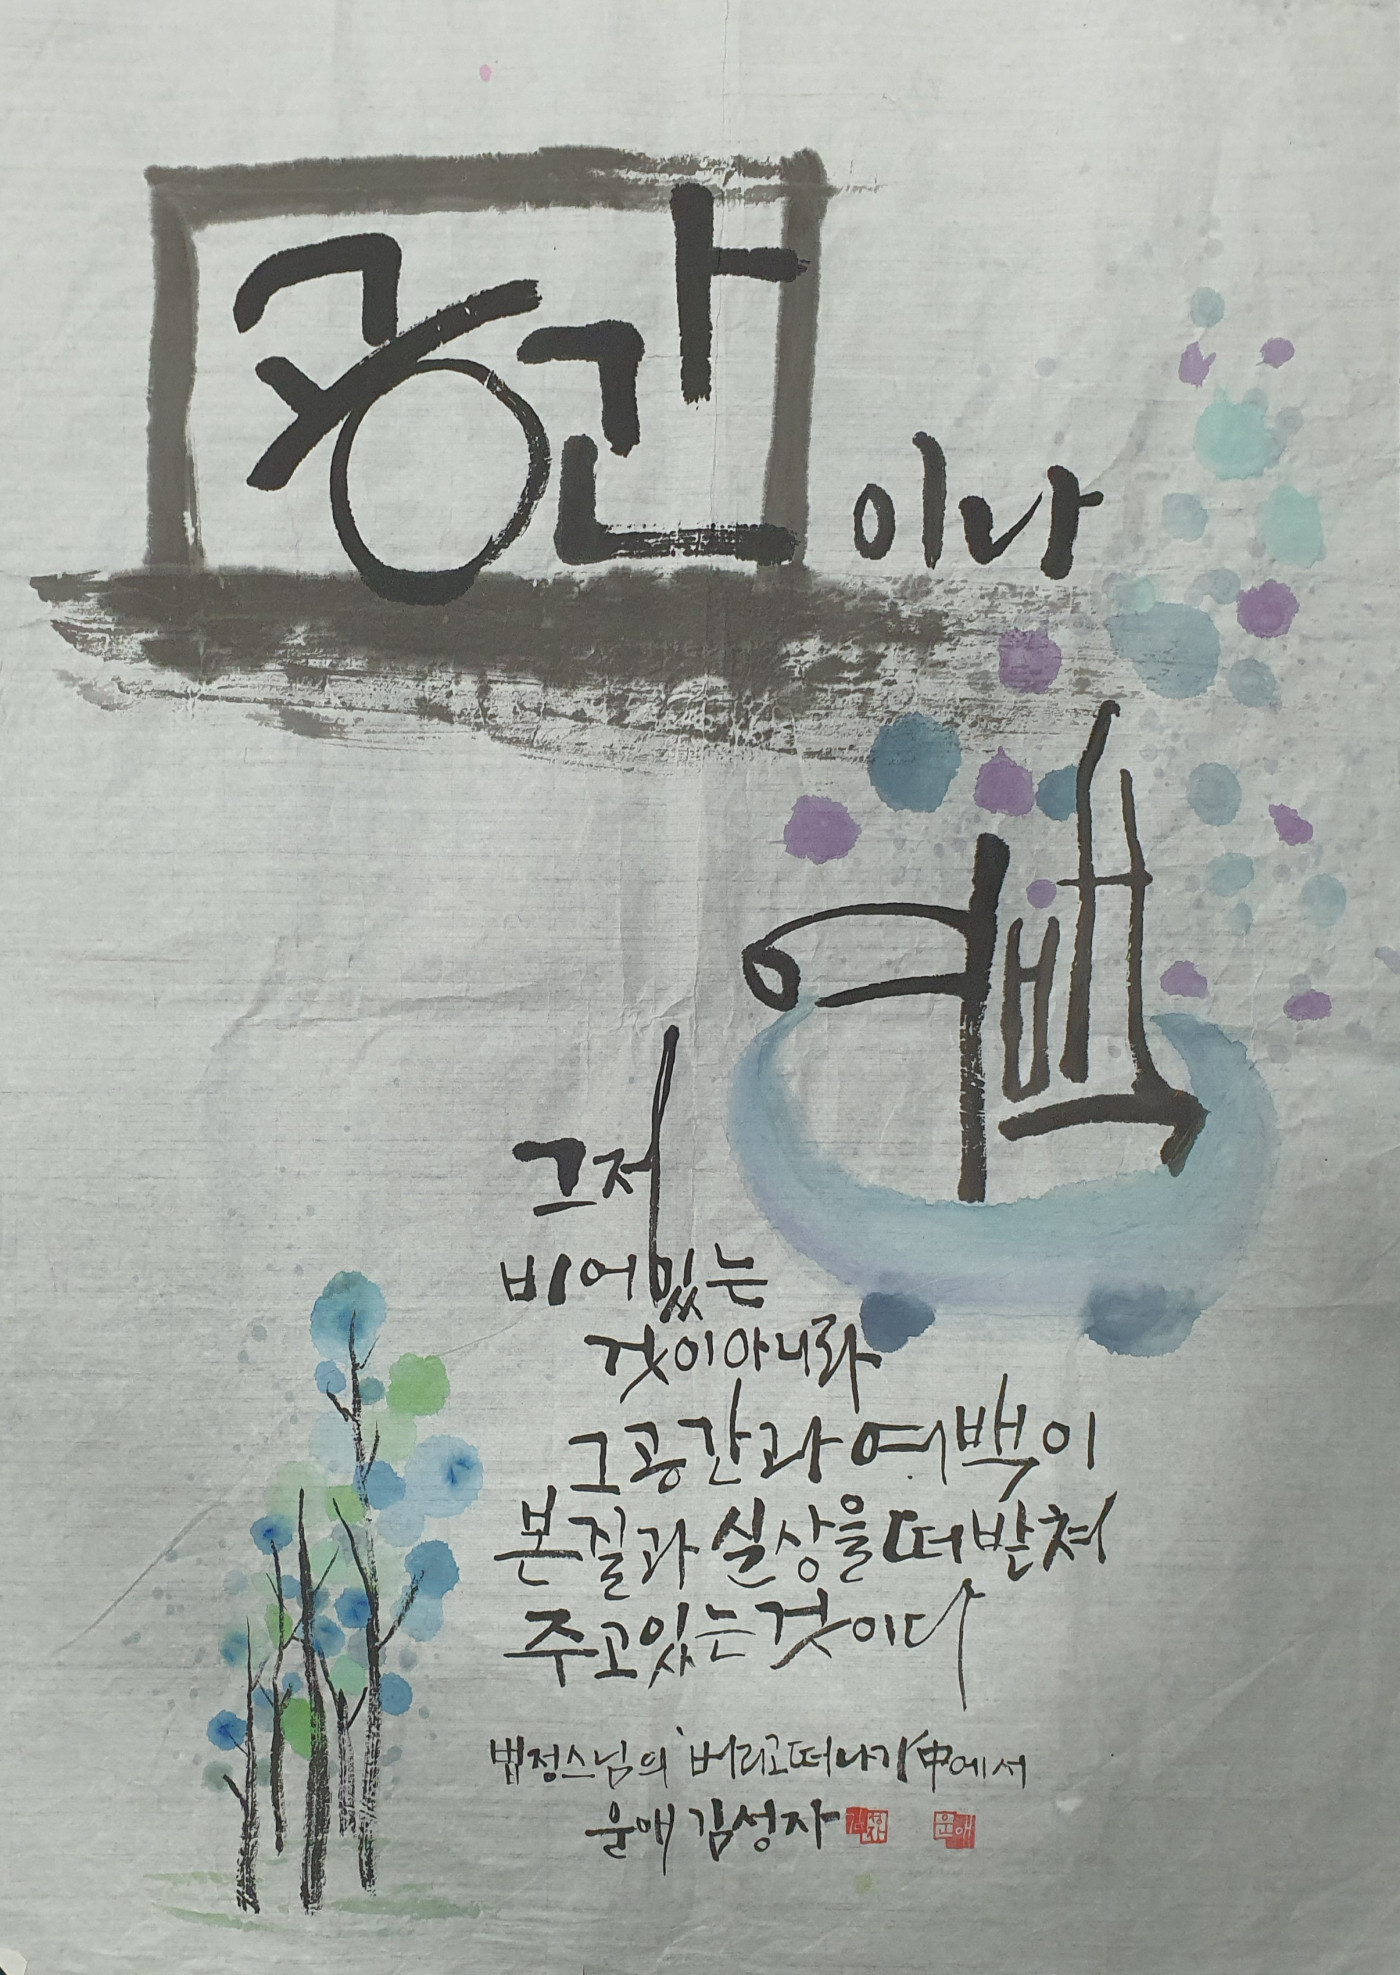 공간이나
여백
그저
비어있는
것이아니라
그공간과 여백이
본질과 실상을 떠받쳐
주고있는것이다
법정스님의 '버리고떠나기'中에서
운애 김성자
김성자 운애